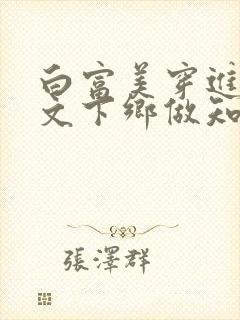 白富美穿進
文下鄉做知
張澤群